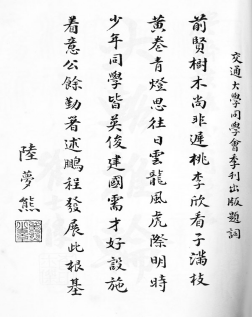 交通大學同學會季刊出版題詞
前賢樹木尚非遲桃李欣看子滿枝
黃卷青燈思往日雲龍風虎際明時
少年同學皆英俊建國需才好設施
着意公餘勤著述鵬程發展此根基
陸夢熊